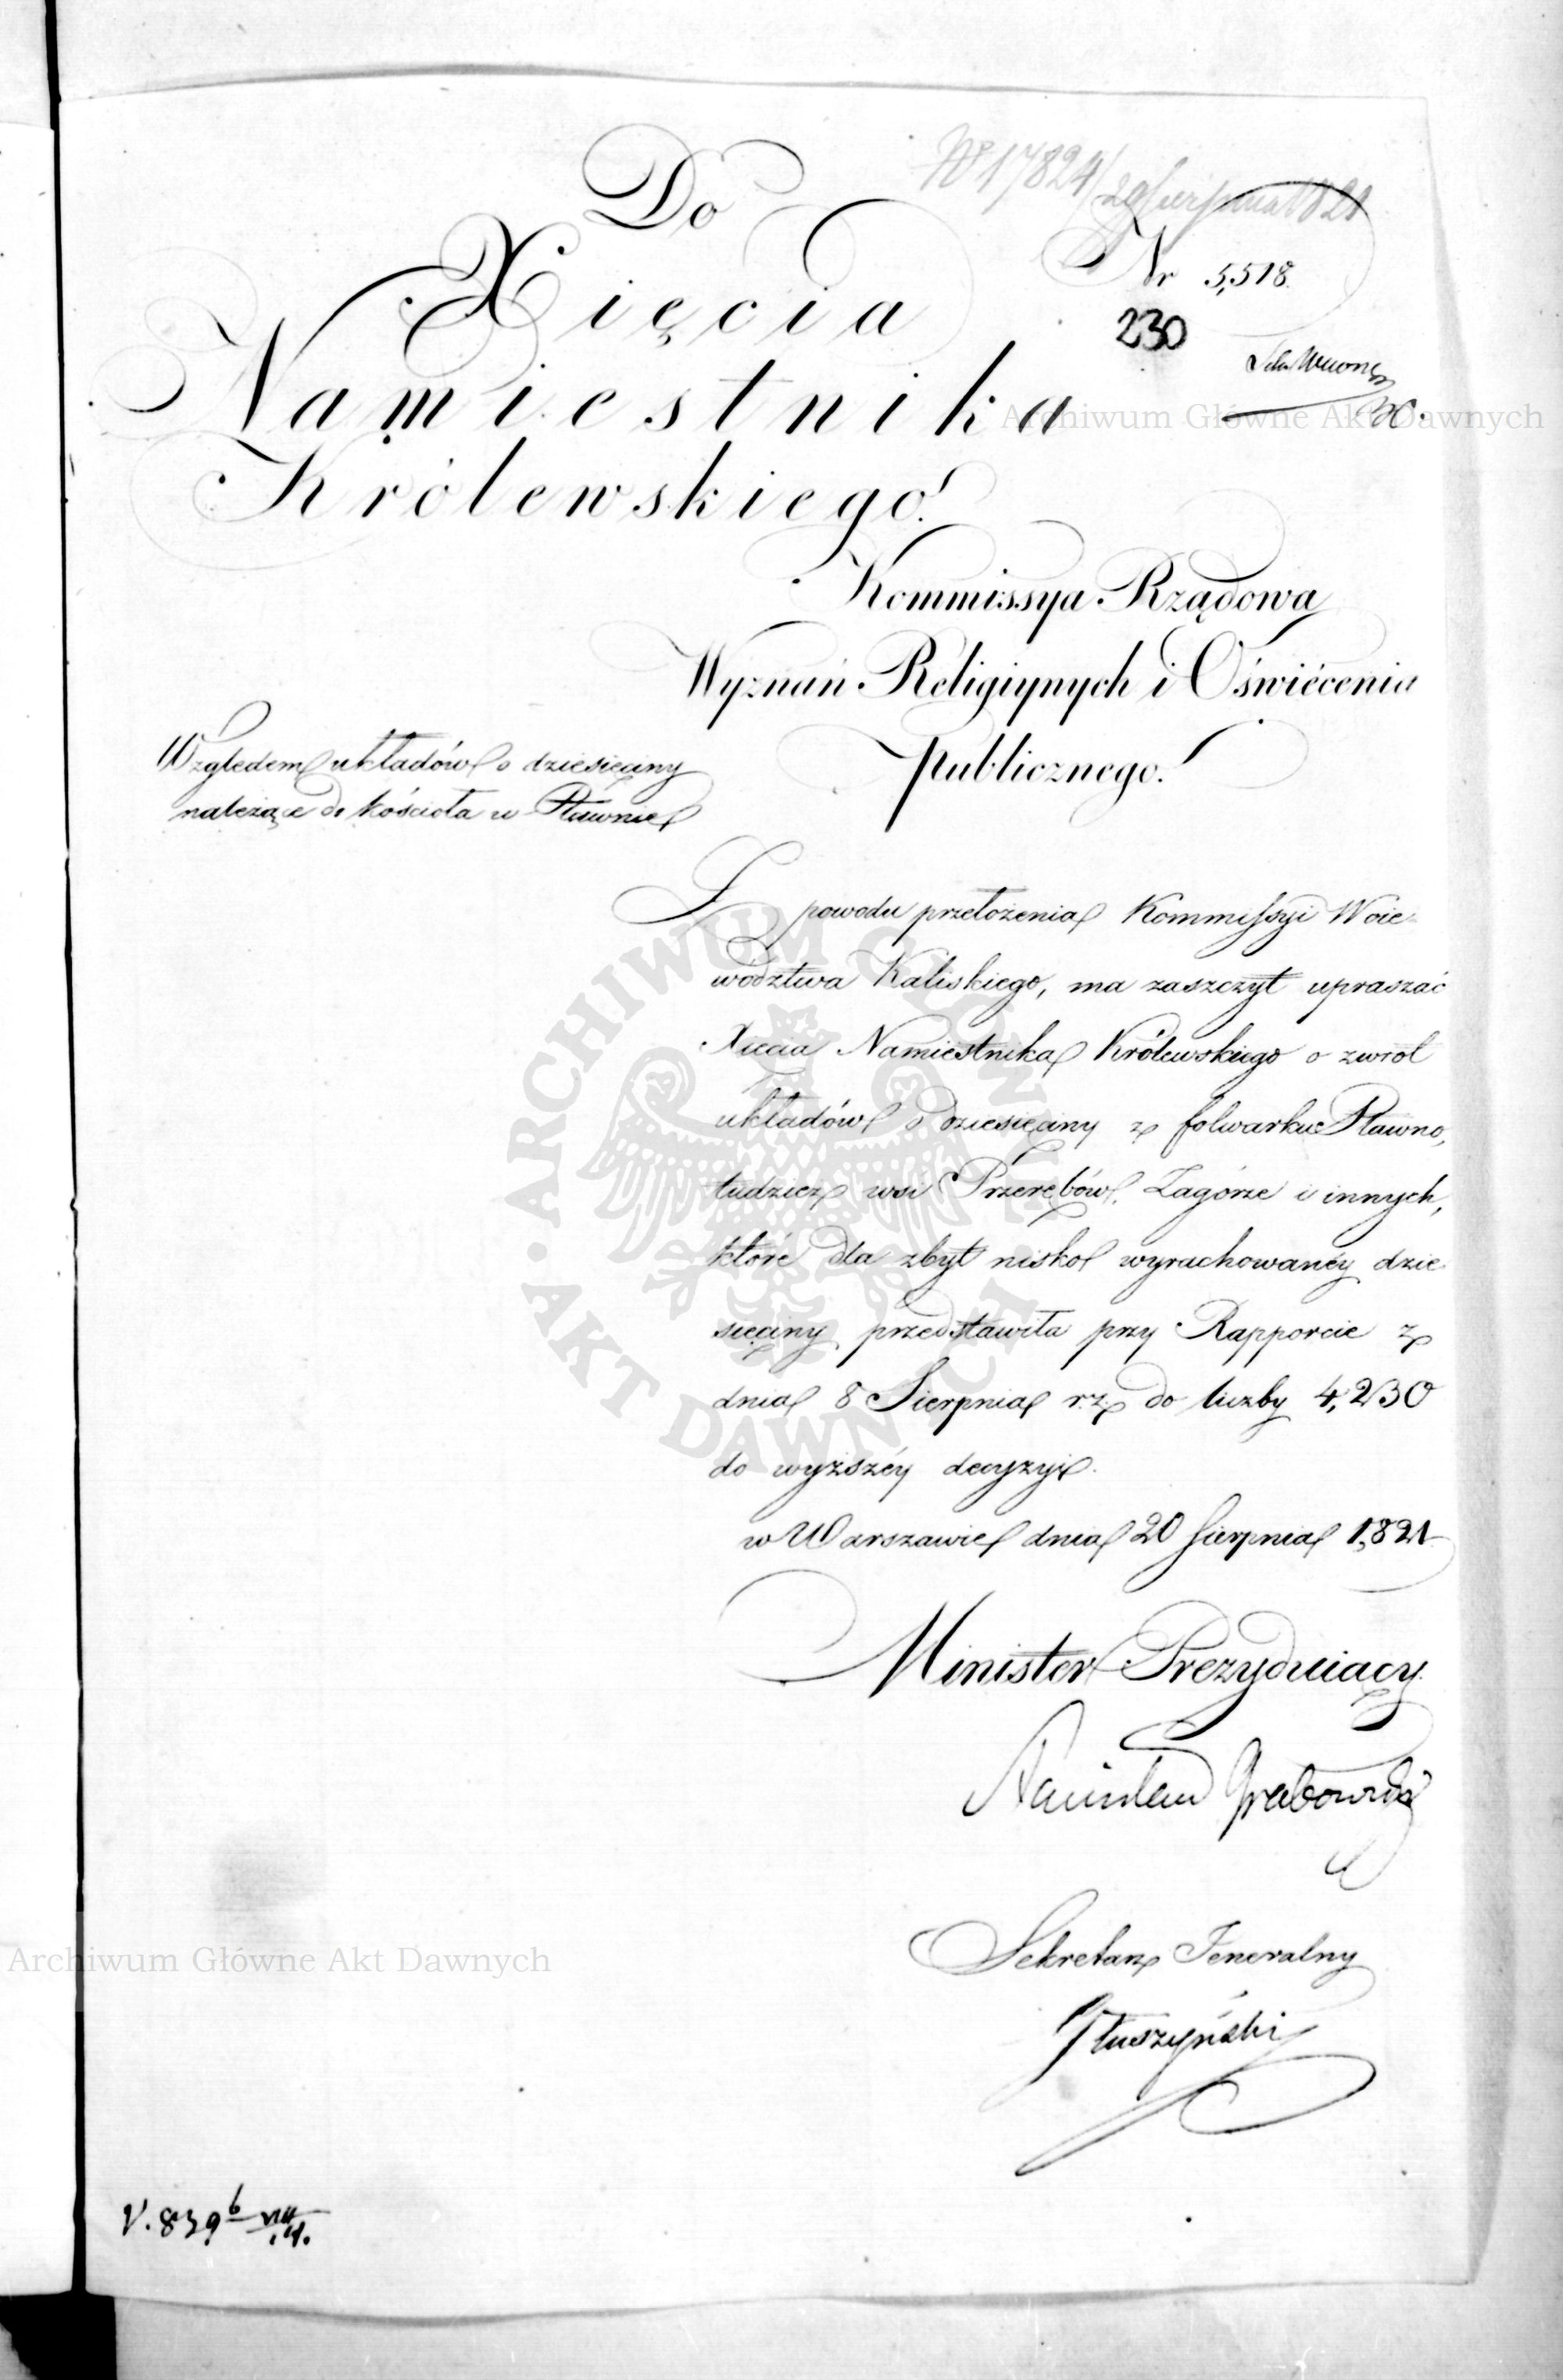 Do
Nr 17824/29 Sierpnia 1821
Xięcia
Nr 5,518.
230
Namiestnika
Królewskiego!
Kommissya Rządowa
Wyznań Religiynych i Oświécenia
publicznego.
Względem układów o dziesięciny
należące do kościoła w Pławnie
Z powodu przełożenia Kommissyi Woie-
wództwa Kaliskiego, ma zaszczyt upraszać
Xięcia Namiestnika Królewskiego o zwrot
układów o dziesięciny z folwarku Pławno,
tudzież wsi Przerębów, Zagórze i innych,
które dla zbyt nisko wyrachowanéy dzie-
sięciny przedstawiła przy Rapporcie z
dnia 8 Sierpnia r.z. do liczby 4,230
do wyższéy decyzyi.
w Warszawie dnia 20 Sierpnia 1,821
Minister Prezyduiący
Stanisław Grabowski
Sekretarz Jeneralny
V. 839 b
Archiwum Główne Akt Dawnych
Archiwum Główne Akt Dawnych
ARCHIWUM GŁÓWNE AKT DAWNYCH